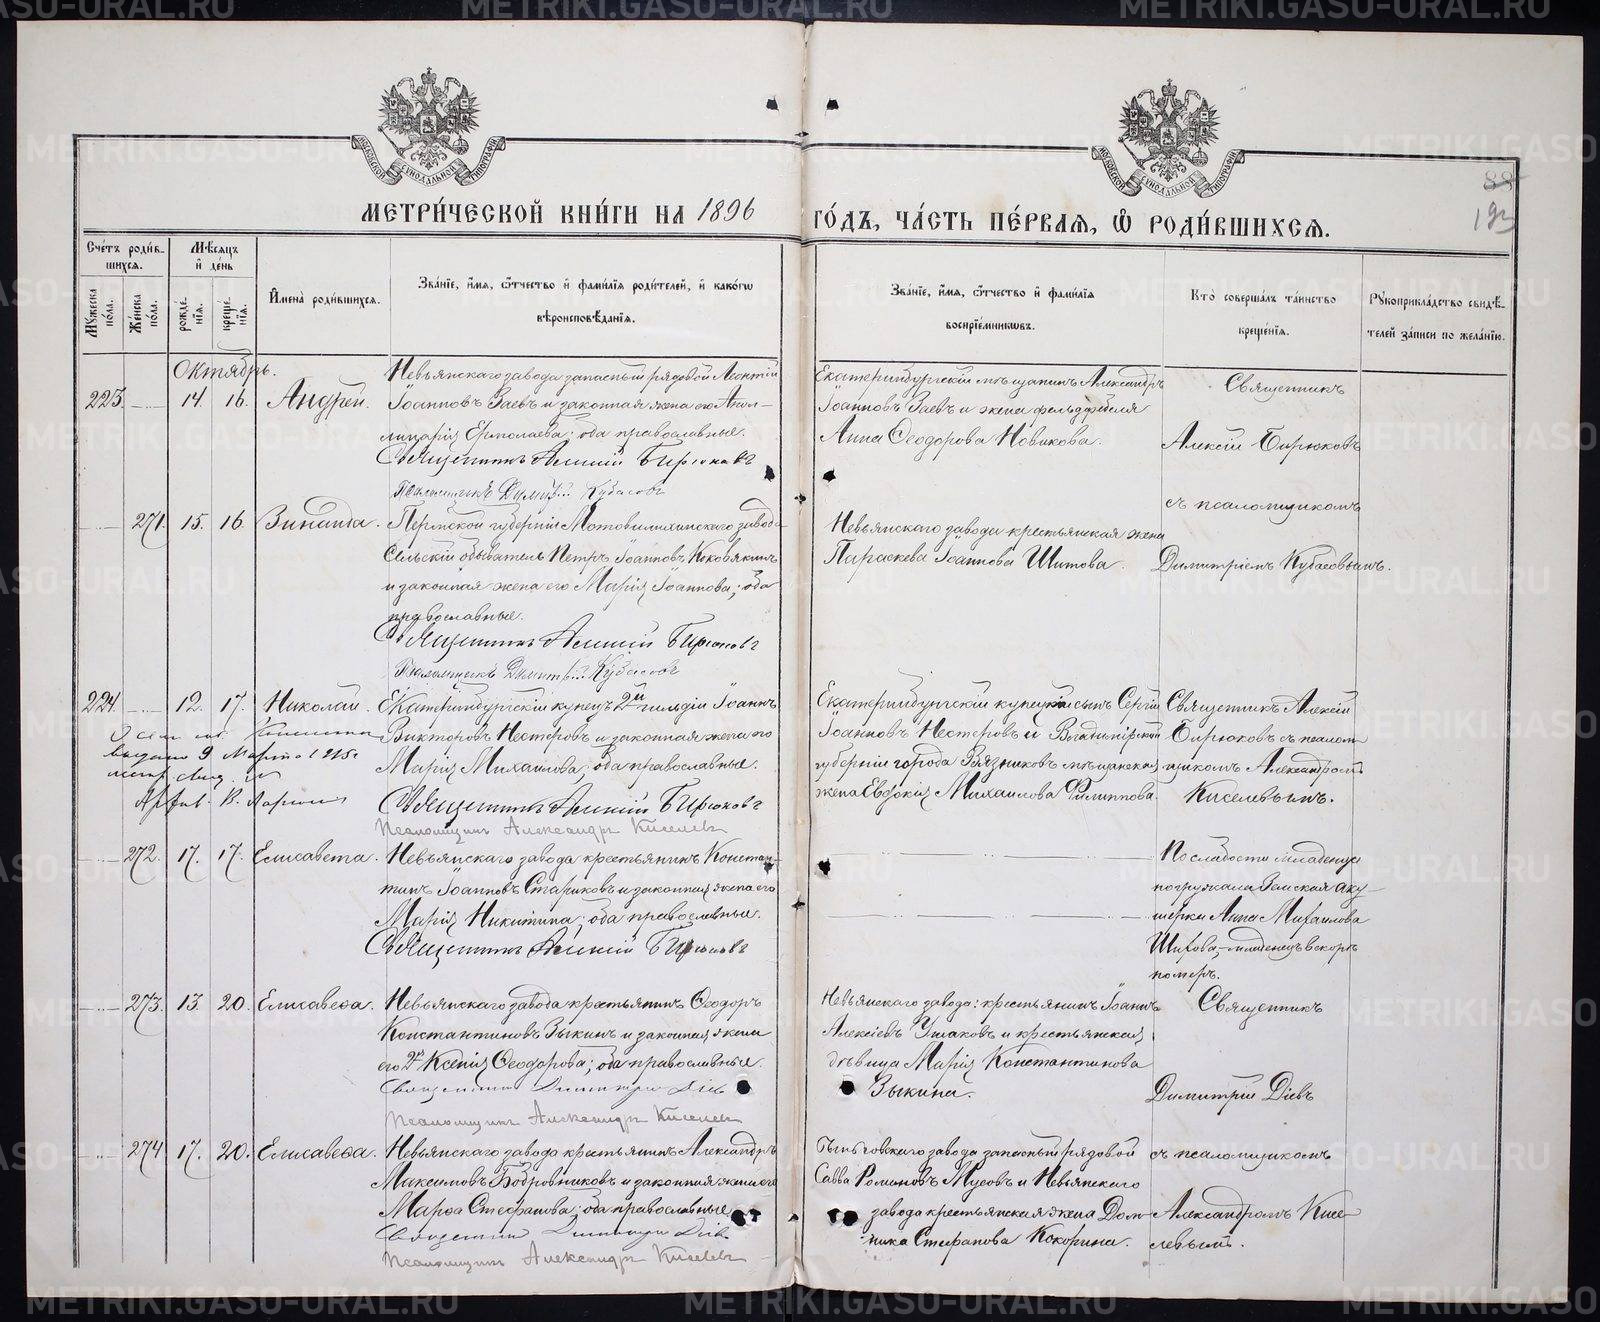 МЕТРИ́ЧЕСКОЙ КНИ́ГИ НА 1896 ГО́ДЪ, ЧА́СТЬ ПЕ́РВАЯ, Ѽ РОДИ́ВШИХСЯ.
88
193
Сче́тъ роди́вшихся.
Му́жеска по́ла.
Же́нска по́ла.
Мѣсяцъ и де́нь
рожде́нія.
креще́нія.
Имена̀ роди́вшихся.
Зва́нїе, и́мя, ѻ́тчество и фами́лїѧ роди́телей, и како́гѡ вѣроисповѣ́данїѧ.
Зва́нїе, и́мя, ѻ́тчество и фами́лїѧ воспрїе́мникѡвъ.
Кто̀ соверша́лъ та́инство креще́нїѧ.
Рукоприкла́дство свидѣ́телей за́писи по жела́нїю.
Октябрь.
223. 14. 16. Андрей.
Невьянскаго завода запасный рядовой Леонтій
Іоанновъ Заевъ и законная жена его Апол-
линарія Ермолаева; оба православные.
Священникъ Алексій Бирюковъ
Псаломщикъ Кубасовъ
Екатеринбургскій мѣщанинъ Александръ
Іоанновъ Заевъ и жена фельдфебеля
Анна Ѳеодорова Новикова.
Священникъ
Алексій Бирюковъ
съ псаломщикомъ
Димитріемъ Кубасовымъ.
271. 15. 16. Зинаида.
Пермской губерніи Мотовилихинскаго завода
сельскій обыватель Петръ Іоанновъ Коковякинъ
и законная жена его Марія Іоаннова; оба
православные.
Священникъ Алексій Бирюковъ
Псаломщикъ Кубасовъ
Невьянскаго завода крестьянская жена
Параскева Іоаннова Шитова.
224. 12. 17. Николай.
выдано 9 Марта 1915 г.
Екатеринбургскій купецъ 2й гильдіи Іоаннъ
Викторовъ Нестеровъ и законная жена его
Марія Михаилова; оба православные.
Священникъ Алексій Бирюковъ
Псаломщикъ Александръ Киселевъ
Екатеринбургскій купецкій сынъ Сергій
Іоанновъ Нестеровъ и Владимірской
губерніи города Вязниковъ мѣщанская
жена Евдокія Михаилова Филиппова.
Священникъ Алексій
Бирюковъ съ псалом-
щикомъ Александромъ
Киселевымъ.
272. 17. 17. Елисавета.
Невьянскаго завода крестьянинъ Констан-
тинъ Іоанновъ Стариковъ и законная жена его
Марія Никитина; оба православные.
Священникъ Алексій Бирюковъ
По слабости младенца
погружала Земская аку-
шерка Анна Михаилова
младенецъ вскорѣ
померъ.
273. 13. 20. Елисавеѳа.
Невьянскаго завода крестьянинъ Ѳеодоръ
Константиновъ Зыкинъ и законная жена
его Ксенія Ѳеодорова; оба православные.
Священникъ Димитрій Діевъ
Псаломщикъ Александръ Киселевъ
Невьянскаго завода: крестьянинъ Іоаннъ
Алексіевъ Ушаковъ и крестьянская
дѣвица Марія Константинова
Зыкина.
Священникъ
Димитрій Діевъ
274. 17. 20. Елисавеѳа.
Невьянскаго завода крестьянинъ Александръ
Максимовъ Бобровниковъ и законная жена его
Марѳа Стефанова; оба православные.
Священникъ Димитрій Діевъ
Псаломщикъ Александръ Киселевъ
завода запасный рядовой
Савва Романовъ Мусовъ и Невьянскаго
завода крестьянская жена Дом-
ника Стефанова Кокорина.
съ псаломщикомъ
Александромъ Кисе-
левымъ.
METRIKI.GASO-URAL.RU